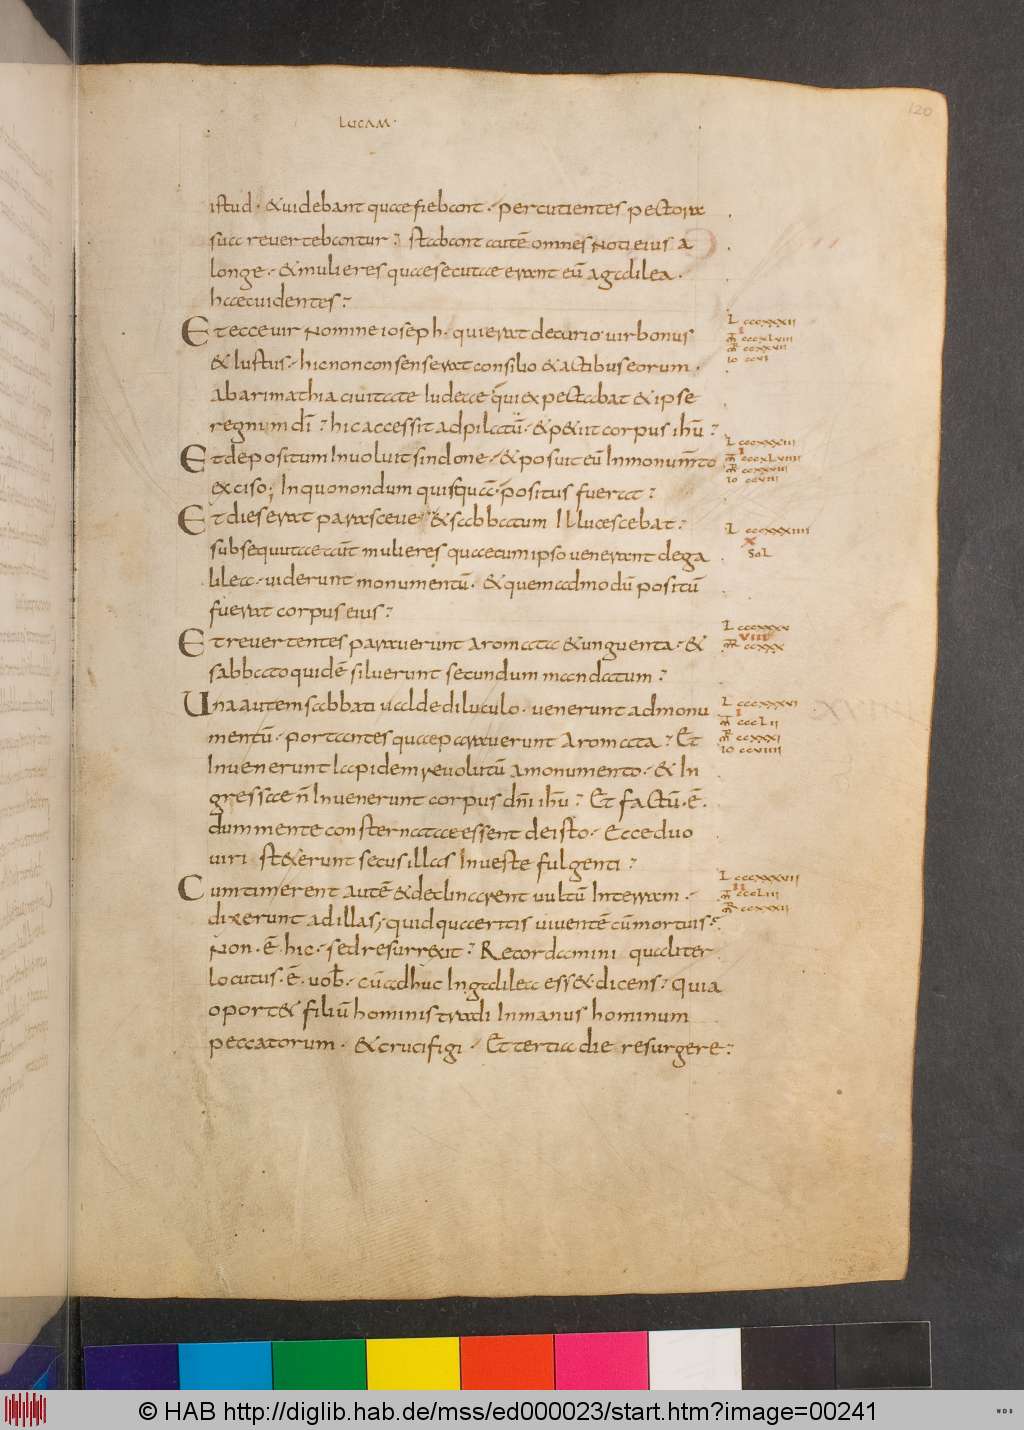 LUCAM·
120
istud· &uidebant quaefiebant· percutientes pectora
sua reuertebantur? stabant autē omnes Notieius a
longe· &mulieres quaesecutae erant eū agalilea·
haecuidentes?
Etecceuir Nomineioseph· quierat decurio uirbonus
&Iustus· hicnonconsenserat consilio &actibuseorum·
abarimathia ciuitate Iudeae q̄uiexpectabat &ipse
regnumdī? hicaccessit adpilatū· &p&iit corpus ihū?
Etdepositum Inuoluitsindone· &posuiteū Inmonum̄to
exciso; Inquonondum quisquā· positus fuerat?
Etdieserat parasceue &sabbatum Illucescebat?
subsequutae autē mulieres quaecumipso uenerant dega
lilea· uiderunt monumentū· &quemadmodū positū
fuerat corpus eius?
Etreuertentes parauerunt aromata &unguenta· &
sabbatoquidē siluerunt secundum mandatum?
Unaautemsabbati ualdediluculo· uenerunt admonu
mentū· portantes quaeparauerunt aromata? Et
Inuenerunt lapidemreuolutū amonumento· &In
gressae n̄Inuenerunt corpus dn̄i ihū? Et factū·ē·
dummente consternatae essent deisto· Ecceduo
uiri st&erunt secusillas Inueste fulgenti?
Cumtimerent autē &declinarent uultū Interram·
dixerunt adillas; quidquaeritis uiuentē cūmortuis?
Non·ē·hic· sedresurrexit? Recordamini qualiter
locutus·ē·uob̄· cūadhuc Ingalilea ess&·dicens? Quia
oport& filiū hominis tradi Inmanus hominum
peccatorum· &crucifigi· Ettertia die resurgere?
L cccxxxii
cccxlviii
ccxxvii
io ccvi
L cccxxxiii
cccxlviiii
ccxxviii
io ccviii
L cccxxxiiii
x
Sol
L cccxxxv
viii
ccxxx
L cccxxxvi
cccLii
ccxxxi
io ccviiii
L cccxxxvii
cccLiii
ccxxxii
© HAB http://diglib.hab.de/mss/ed000023/start.htm?image=00241
WDB